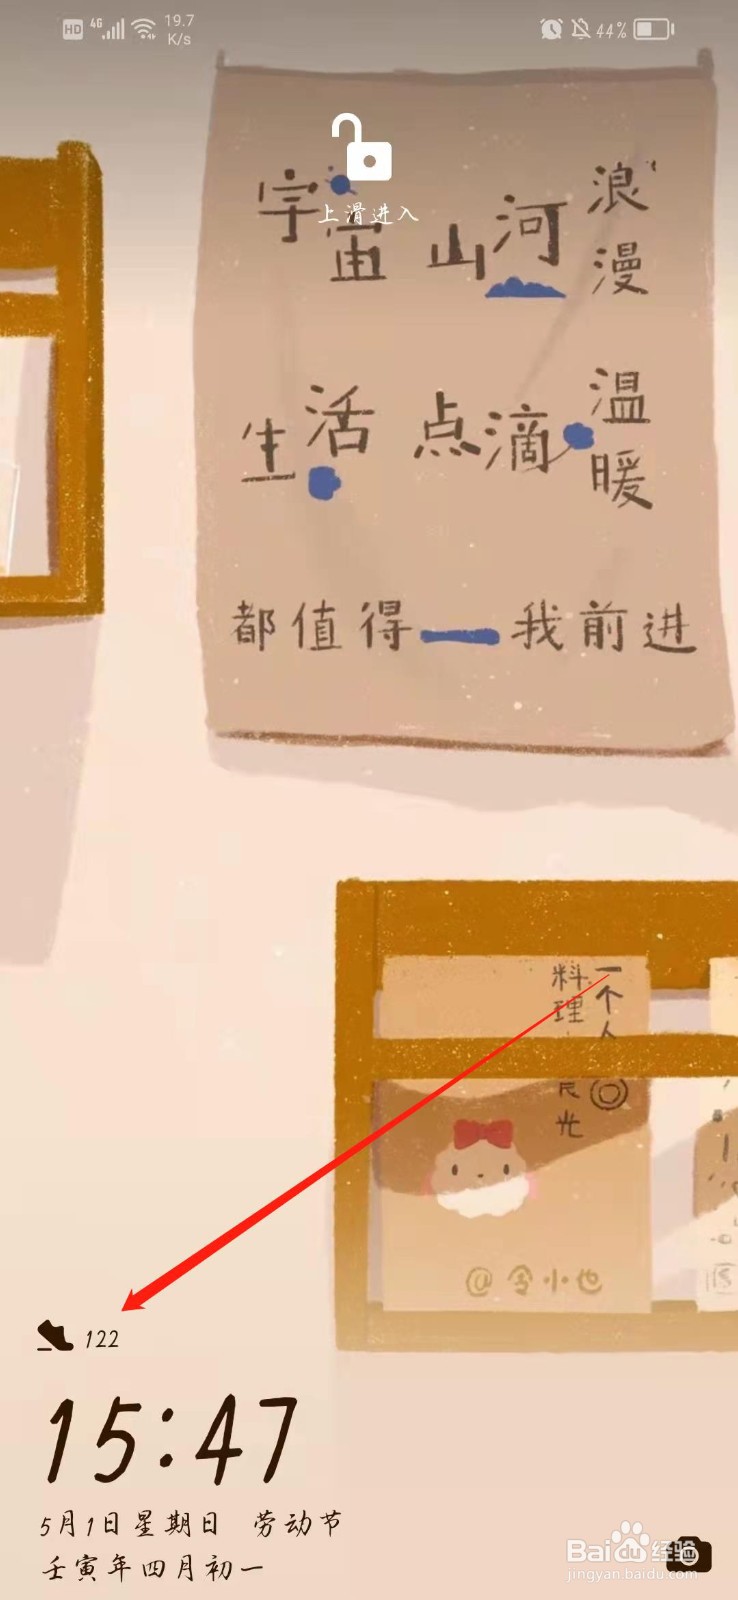 HD 4G 19.7 K/s 44%
上滑进入
宇宙 山河 浪漫
生活 点滴 温暖
都值得 我前进
一个人
料理
光
@令小也
122
15:47
5月1日星期日 劳动节
壬寅年四月初一
Baidu经验
jingyan.baidu.com